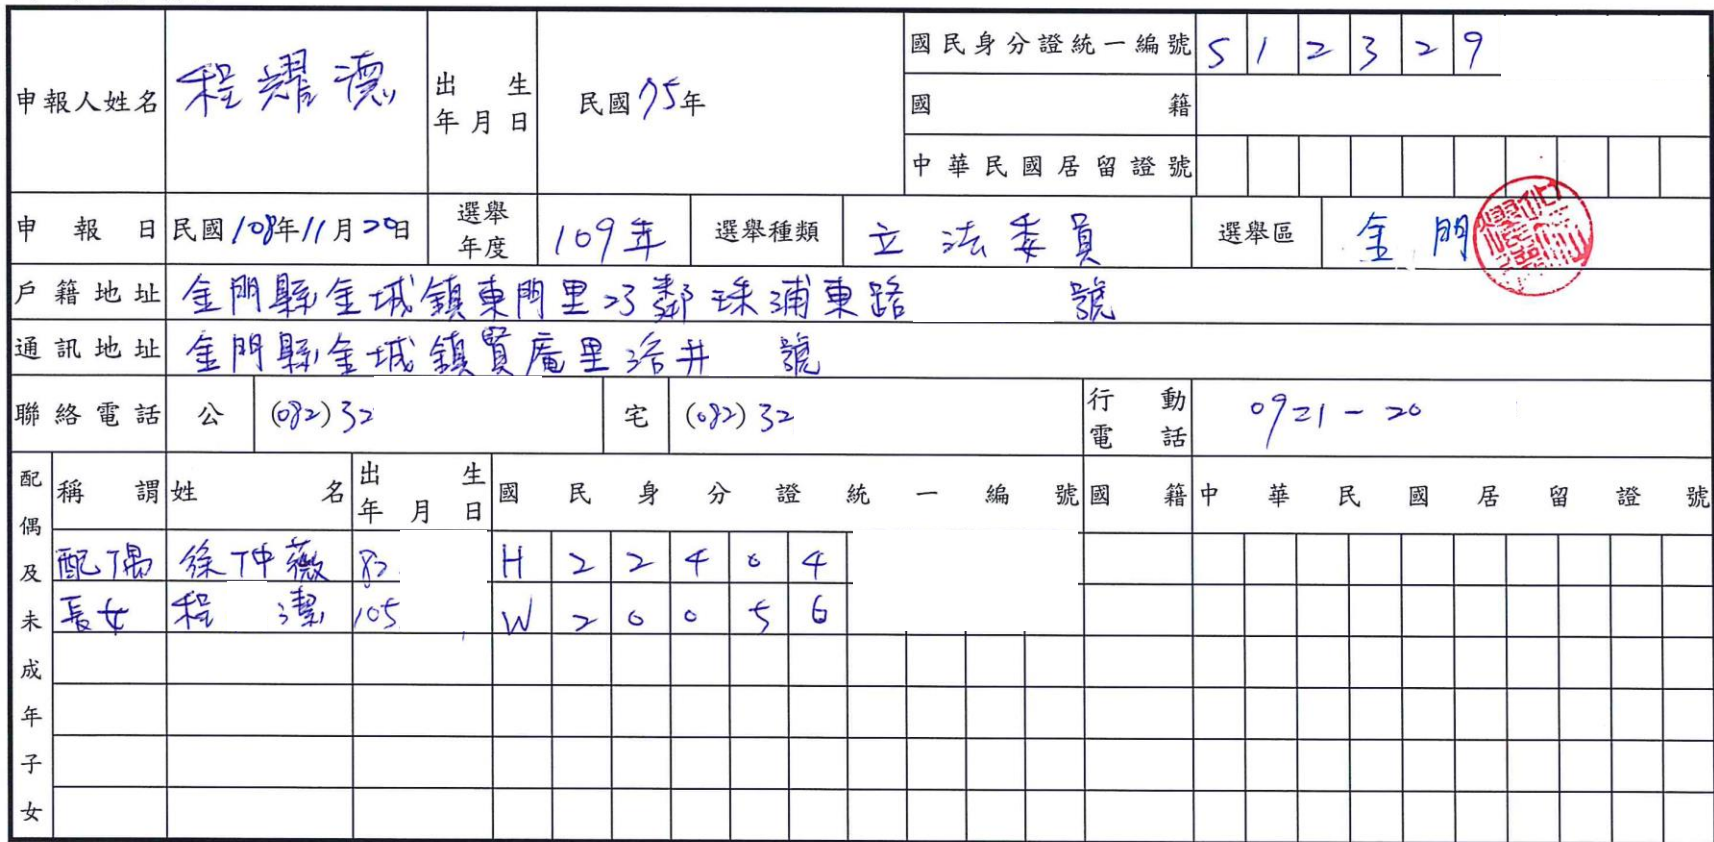 申報人姓名 程耀德 出生年月日 民國75年 國民身分證統一編號 S12329
國籍
中華民國居留證號
申報日 民國108年11月20日 選舉年度 109年 選舉種類 立法委員 選舉區 金門
戶籍地址 金門縣金城鎮東門里23鄰珠浦東路 號
通訊地址 金門縣金城鎮賢庵里洛井 號
聯絡電話 公 (082)32 宅 (082)32 行動電話 0921-20
配偶及未成年子女 稱謂 姓名 出生年月日 國民身分證統一編號 國籍 中華民國居留證號
配偶 徐仲薇 82 H22404
長女 程潔 105 W20056